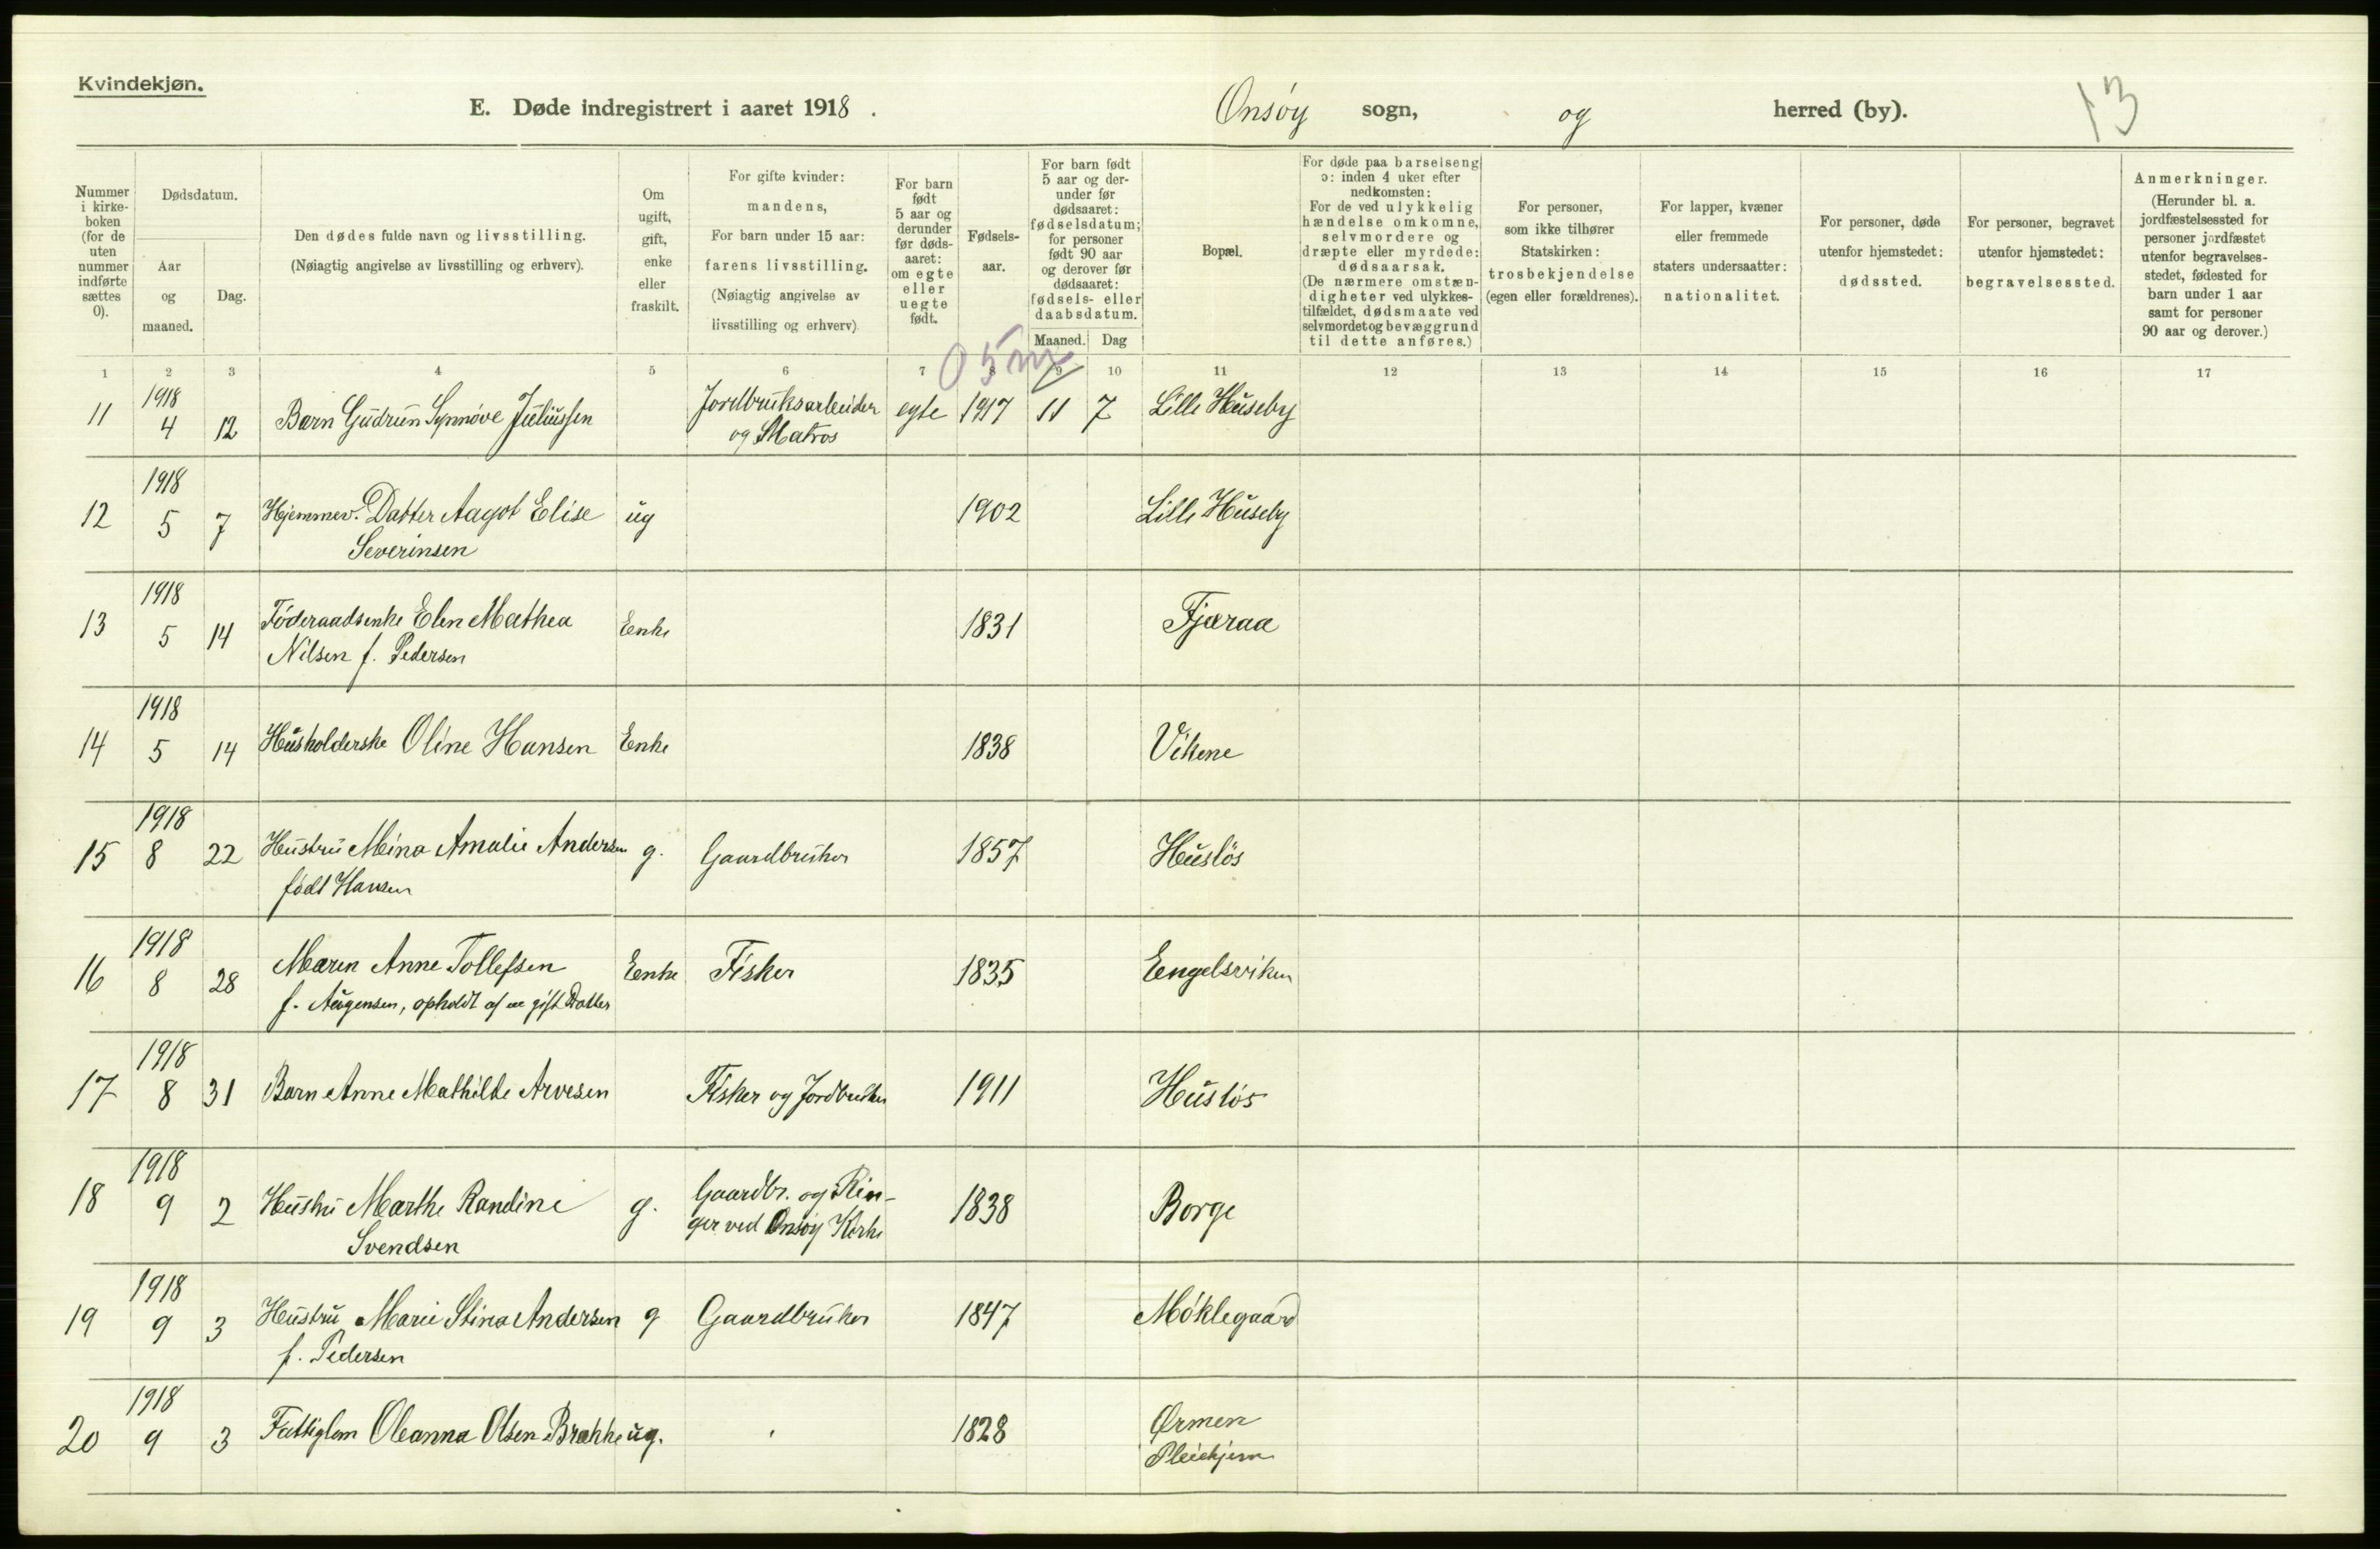 Kvindekjøn.
E. Døde indregistrert i aaret 1918.
Onsøy sogn, og herred (by).
13
Nummer i kirke-boken (for de uten nummer indførte sættes 0).
Dødsdatum.
Aar og maaned.
Dag.
Den dødes fulde navn og livsstilling.
(Nøiagtig angivelse av livsstilling og erhverv).
Om ugift, gift, enke eller fraskilt.
For gifte kvinder: mandens,
For barn under 15 aar: farens livsstilling.
(Nøiagtig angivelse av livsstilling og erhverv)
For barn født 5 aar og derunder før døds-aaret: om egte eller uegte født.
Fødsels-aar.
For barn født 5 aar og der-under før dødsaaret: fødselsdatum; for personer født 90 aar og derover før dødsaaret: fødsels- eller daabsdatum.
Maaned. Dag
Bopæl.
For døde paa barselseng ɔ: inden 4 uker efter nedkomsten:
For de ved ulykkelig hændelse omkomne, selvmordere og dræpte eller myrdede: dødsaarsak.
(De nærmere omstæn-digheter ved ulykkes-tilfældet, dødsmaate ved selvmordet og bevæggrund til dette anføres.)
For personer, som ikke tilhører Statskirken: trosbekjendelse (egen eller forældrenes).
For lapper, kvæner eller fremmede staters undersaatter: nationalitet.
For personer, døde utenfor hjemstedet: dødssted.
For personer, begravet utenfor hjemstedet: begravelsessted.
Anmerkninger.
(Herunder bl. a. jordfæstelsessted for personer jordfæstet utenfor begravelses-stedet, fødested for barn under 1 aar samt for personer 90 aar og derover.)
1 2 3 4 5 6 7 8 9 10 11 12 13 14 15 16 17
05m
1918
11 4 12 Barn Gudrun Synnøve Juliussen Jordbruksarbeider egte 1917 11 7 Lille Huseby
og Matros
1918
12 5 7 Hjemmev. Datter Aagot Elise ug 1902 Lille Huseby
Severinsen
1918
13 5 14 Føderaadsenke Elen Mathea Enke 1831 Fjæraa
Nilsen f. Pedersen
1918
14 5 14 Husholderske Oline Hansen Enke 1838 Vikene
1918
15 8 22 Hustru Mina Amalie Andersen g. Gaardbruker 1857 Husløs
født Hansen
1918
16 8 28 Maren Anne Tollefsen Enke Fisker 1835 Engelsviken
f. Augensen, opholdt af en gift Datter
1918
17 8 31 Barn Anne Mathilde Arvesen Fisker og Jordbruker 1911 Husløs
1918
18 9 2 Hustru Marthe Randine g. Gaardbr. og Rin- 1838 Borge
Svendsen ger ved Onsøy Kirke
1918
19 9 3 Hustru Marie Stina Andersen g Gaardbruker 1847 Møklegaard
f. Pedersen
1918
20 9 3 Fattiglem Oleanna Olsen Brække ug. 1828 Ørmen
Pleiehjem